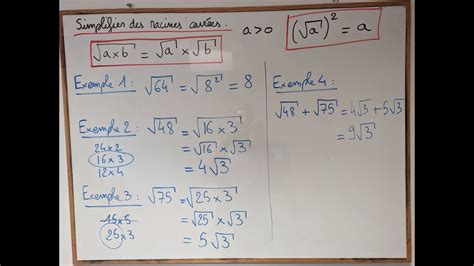 Simplifier des racines carrées.
a>0
(√a)² = a
√a×b = √a × √b
Exemple 1 : √64 = √8² = 8
Exemple 2 : √48 = √16×3
= √16 × √3
= 4√3
24×2
16×3
12×4
Exemple 3 : √75 = √25×3
= √25 × √3
= 5√3
15×5
25×3
Exemple 4 :
√48 + √75 = 4√3 + 5√3
= 9√3